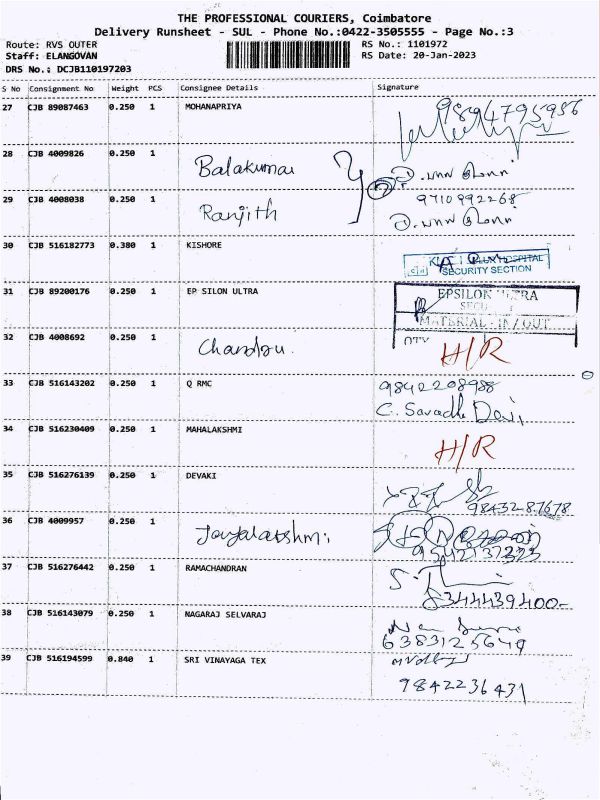 THE PROFESSIONAL COURIERS, Coimbatore
Delivery Runsheet - SUL - Phone No.:0422-3505555 - Page No.:3
Route: RVS OUTER RS No.: 1101972
Staff: ELANGOVAN RS Date: 20-Jan-2023
DRS No.: DCJB110197203
S No Consignment No Weight PCS Consignee Details Signature
27 CJB 89087463 0.250 1 MOHANAPRIYA 9894795956
28 CJB 4009826 0.250 1 Balakumar
29 CJB 4008038 0.250 1 Ranjith 9710992268
30 CJB 516182773 0.380 1 KISHORE HOSPITAL
SECURITY SECTION
31 CJB 89200176 0.250 1 EP SILON ULTRA EPSILON ULTRA
MATERIAL - IN / OUT
QTY
32 CJB 4008692 0.250 1 Chandru. H/R
33 CJB 516143202 0.250 1 Q RMC 9842208988
34 CJB 516230409 0.250 1 MAHALAKSHMI H/R
35 CJB 516276139 0.250 1 DEVAKI 9843287678
36 CJB 4009957 0.250 1 Jayalakshmi
37 CJB 516276442 0.250 1 RAMACHANDRAN 8344439400-
38 CJB 516143079 0.250 1 NAGARAJ SELVARAJ 6383125649
39 CJB 516194599 0.840 1 SRI VINAYAGA TEX
9842236431